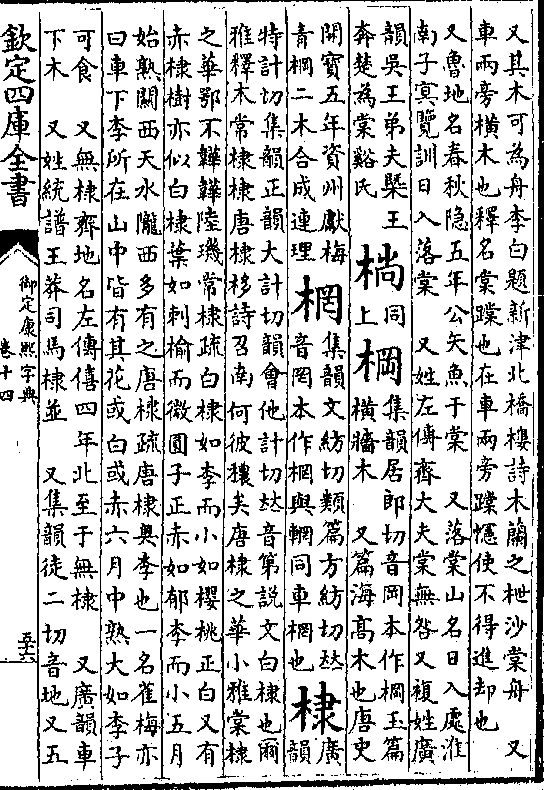 又其木可為舟李白題新津北橋樓詩木蘭之枻沙棠舟　又
車兩旁橫木也釋名棠蹚也在車兩旁蹚幰使不得進却也
又魯地名春秋隐五年公矢魚于棠　又落棠山名日入處淮
南子冥覽訓日入落棠　又姓左傳齊大夫棠無咎又複姓廣
韻吳王弟夫槩王
奔楚為棠谿氏
同上
棡
集韻居郎切音岡本作棡玉篇
橫牆木　又篇海高木也唐史
開寶五年資州獻梅
青棡二木合成連理
棢
集韻文紡切類篇方紡切𠀤
音罔本作棢與輞同車棢也
棣
廣
韻
特計切集韻正韻大計切韻會他計切𠀤音第說文白棣也爾
雅釋木常棣棣唐棣栘詩召南何彼穠矣唐棣之華小雅棠棣
之華鄂不韡韡陸璣常棣疏白棣如李而小如櫻桃正白又有
赤棣樹亦似白棣葉如刺榆而微圓子正赤如郁李而小五月
始熟關西天水隴西多有之唐棣疏唐棣奥李也一名雀梅亦
曰車下李所在山中皆有其花或白或赤六月中熟大如李子
可食　又無棣齊地名左傳僖四年北至于無棣　又廣韻車
下木　又姓統譜王莽司馬棣並　又集韻徒二切音地又五
欽定四庫全書
御定康熙字典
卷十四
五六